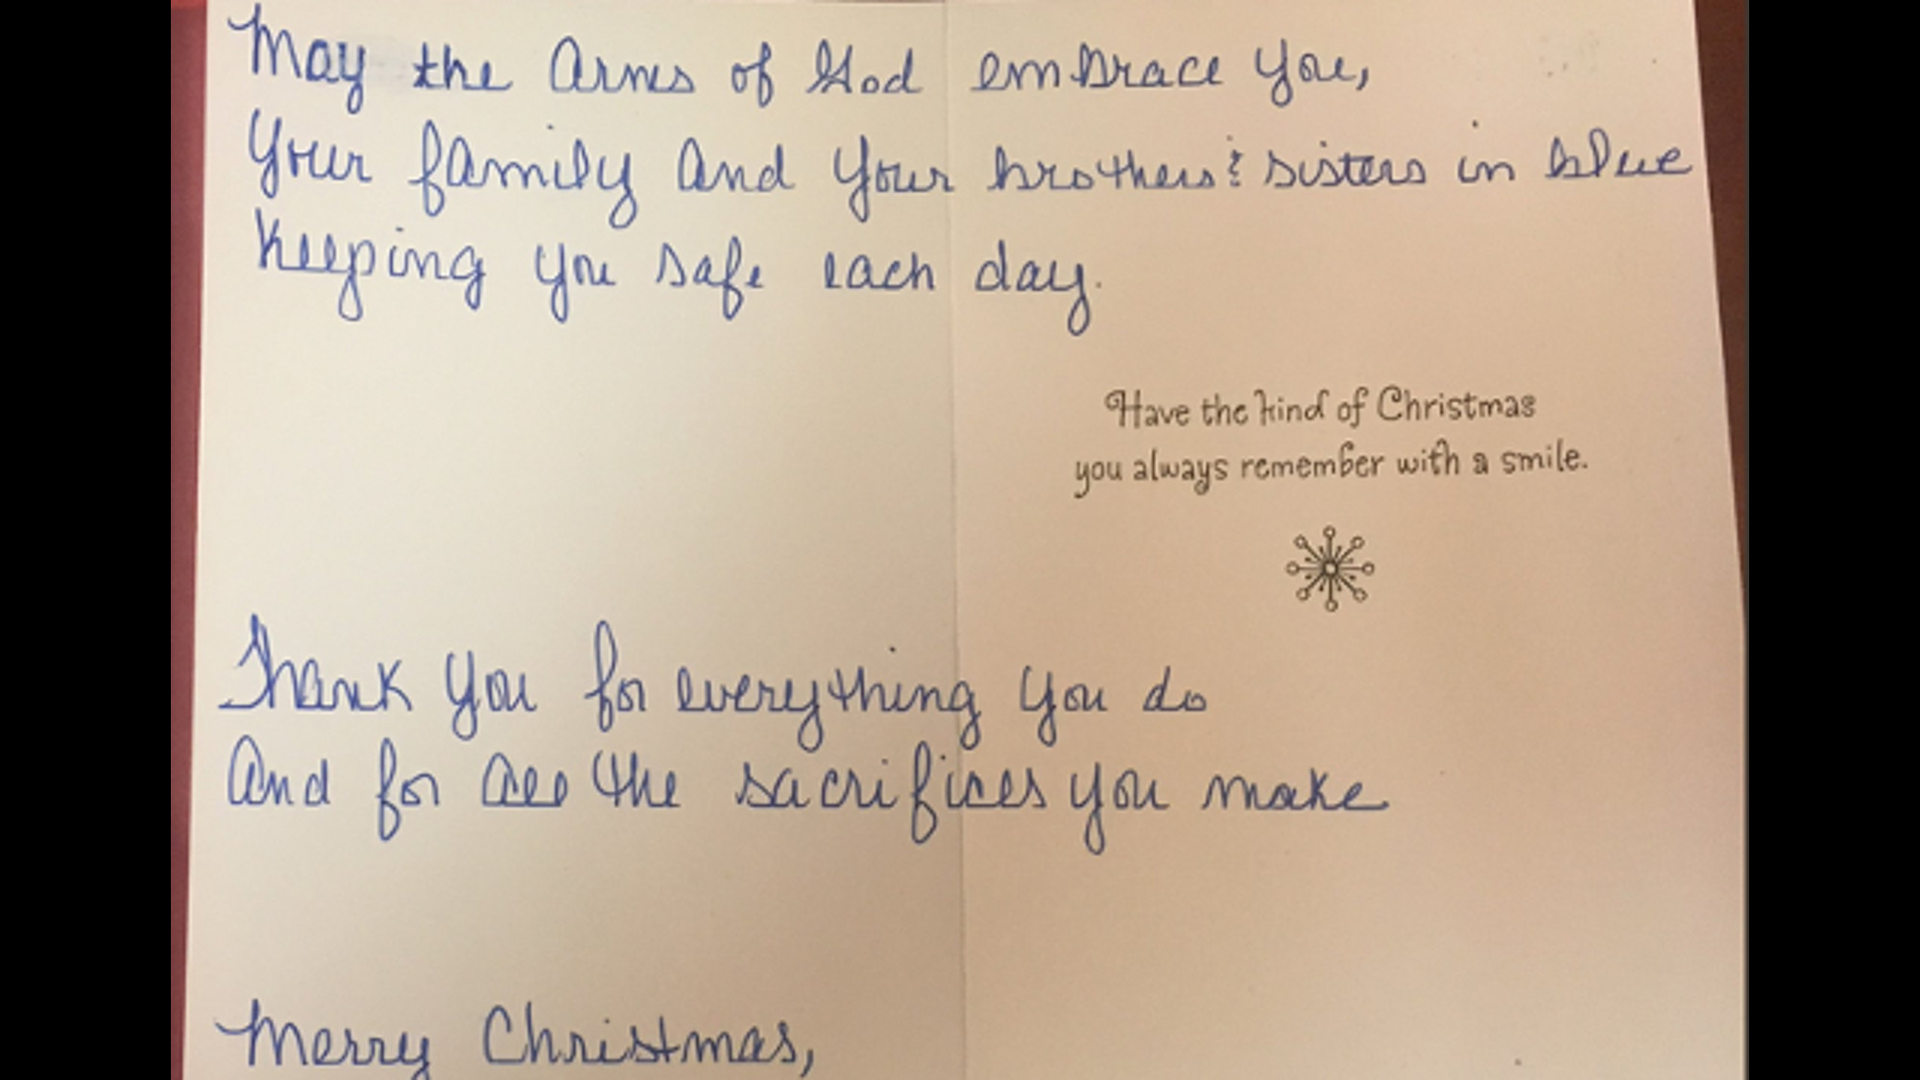 May the Arms of God embrace you,
Your family And your brothers & sisters in blue
Keeping you safe each day.
Have the kind of Christmas
you always remember with a smile.
Thank You for everything you do
And for All the sacrifices you make
Merry Christmas,